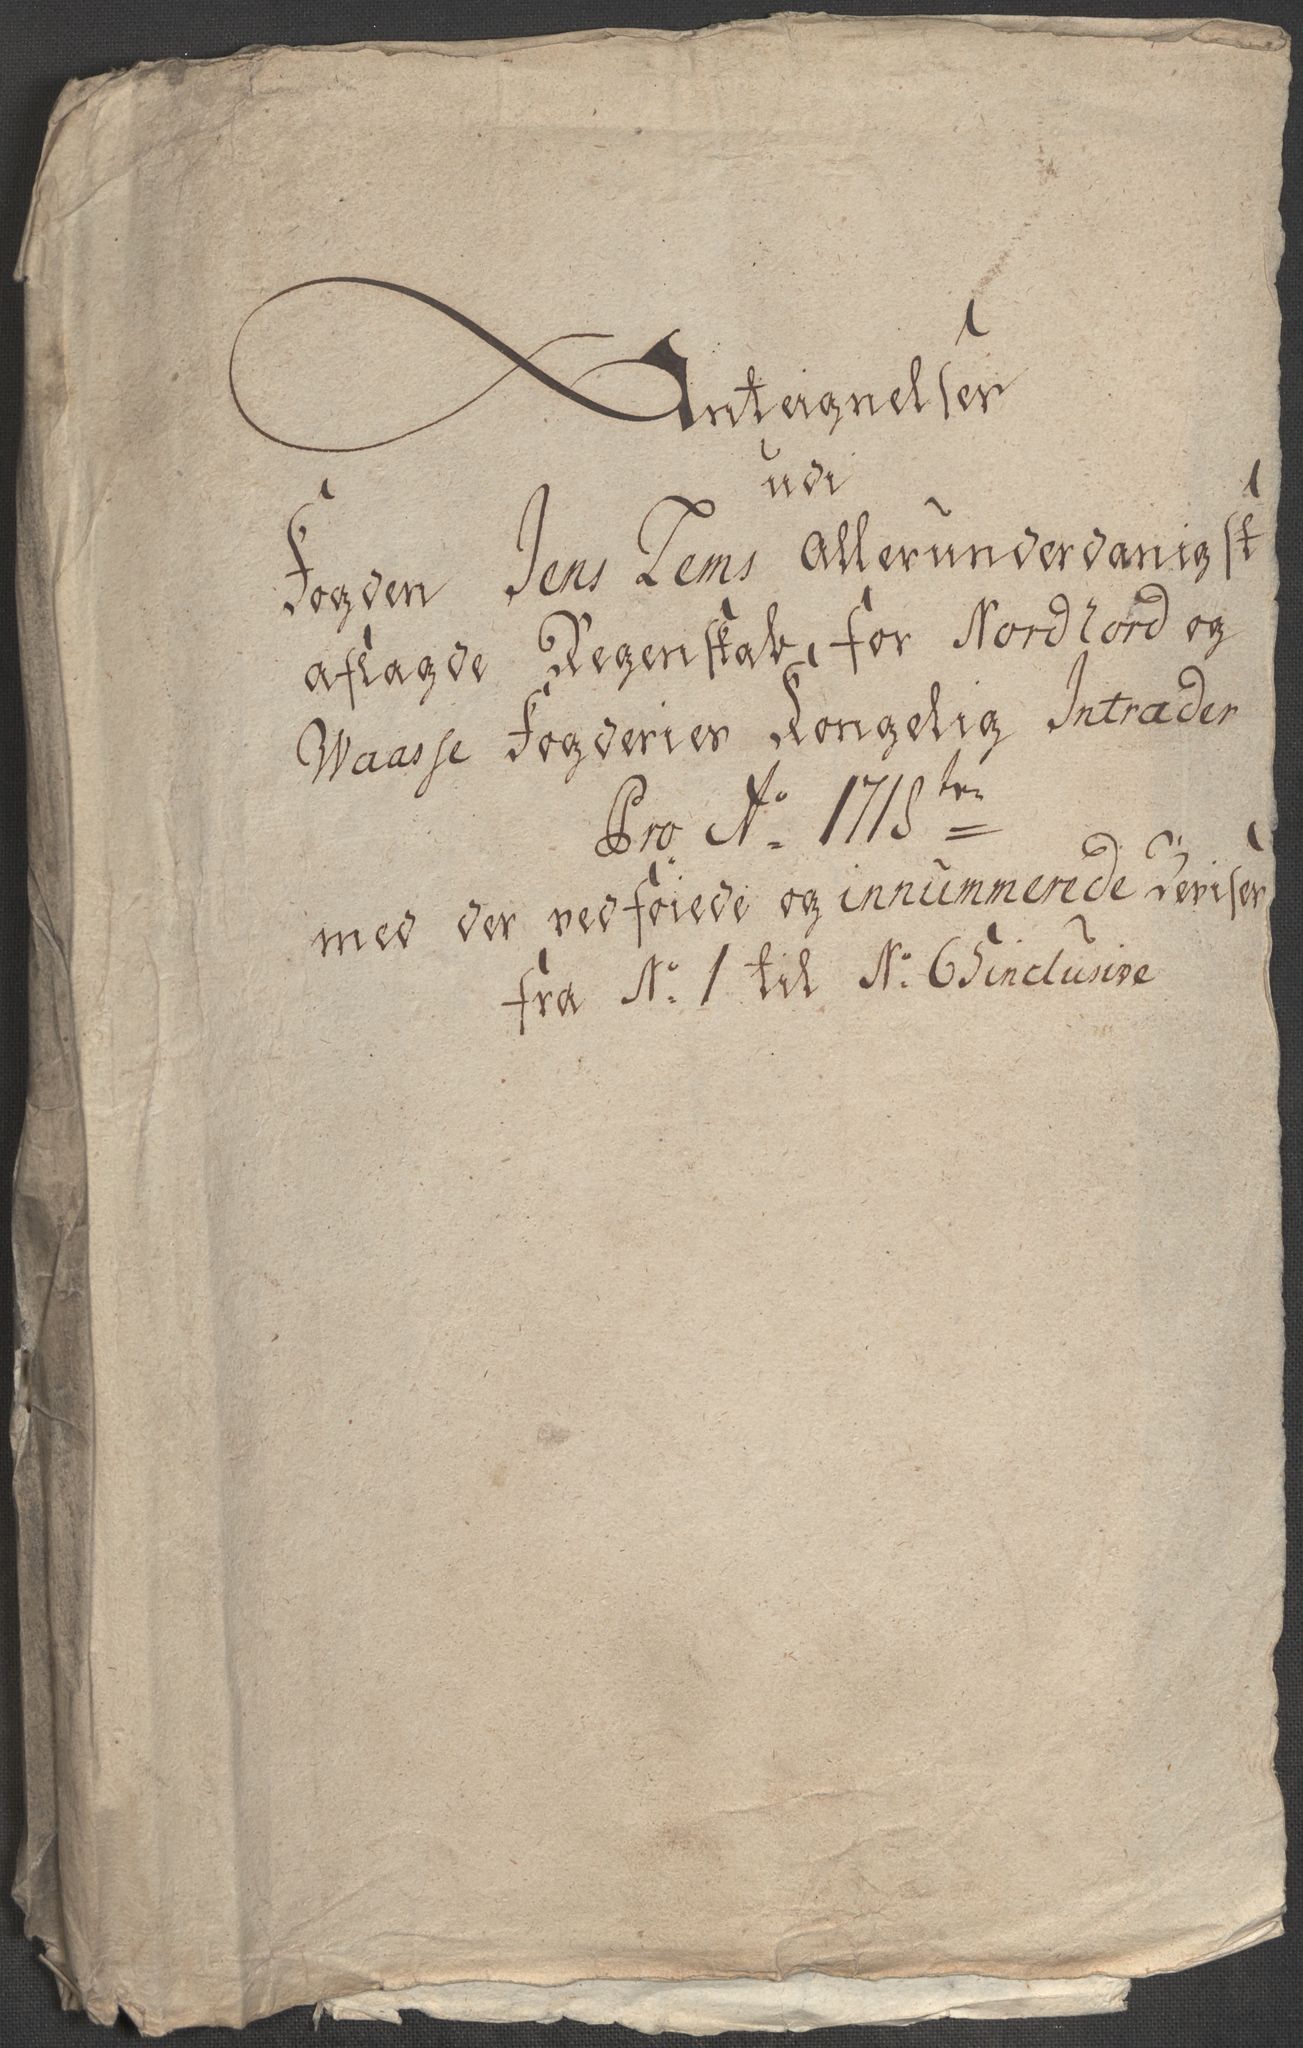 Anteignelser
udi
Fogden Jens Tems Allerunderdanigst
aflagde Regenskab, for Nordlord og
Waasse Fogderier Kongelig Intrader
Pro Ao. 1715
med der ved föiede og innummerede Beviser
fra No. 1 til No. 65 inclusive